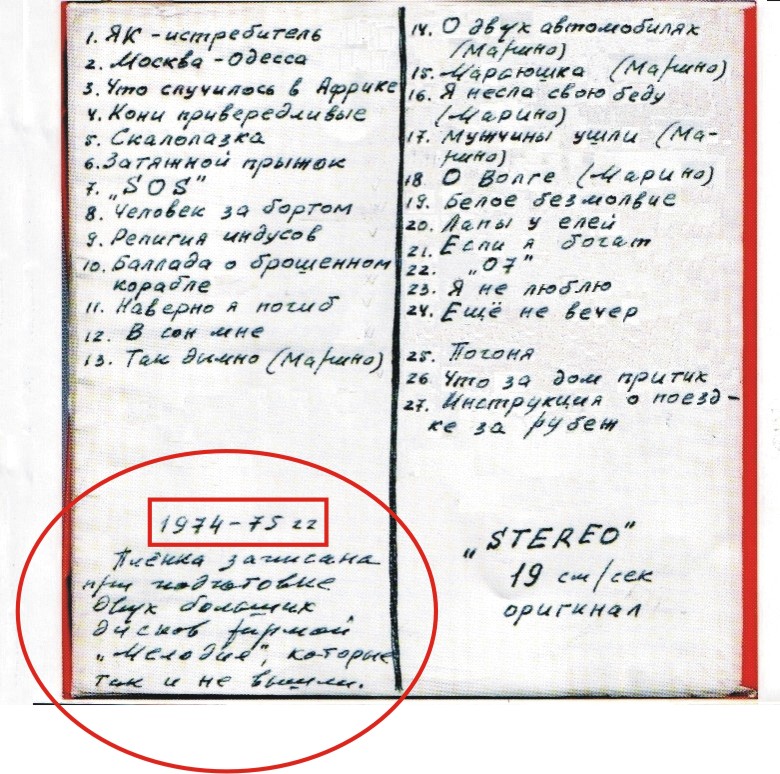 1. ЯК-истребитель
2. Москва-Одесса
3. Что случилось в Африке
4. Кони привередливые
5. Скалолазка
6. Затяжной прыжок
7. „SOS"
8. Человек за бортом
9. Религия индусов
10. Баллада о брошенном
корабле
11. Наверно я погиб
12. В сон мне
13. Так дымно (Марино)
1974-75 гг
Плёнка записана
при подготовке
двух больших
дисков фирмой
„Мелодия", которые
так и не вышли.
14. О двух автомобилях
(Марино)
15. Марьюшка (Марино)
16. Я несла свою беду
(Марино)
17. Мужчины ушли (Ма-
рино)
18 О Волге (Марино)
19. Белое безмолвие
20. Лапы у елей
21. Если я богат
22. „07"
23. Я не люблю
24. Ещё не вечер
25. Погоня
26 Что за дом притих
27. Инструкция о поезд-
ке за рубеж
„STEREO"
19 см/сек
оригинал